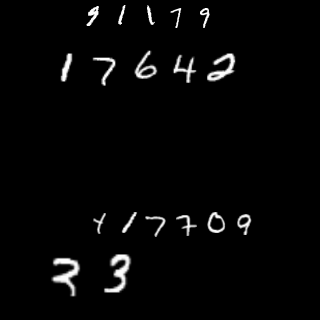 91179
17642
417709
33